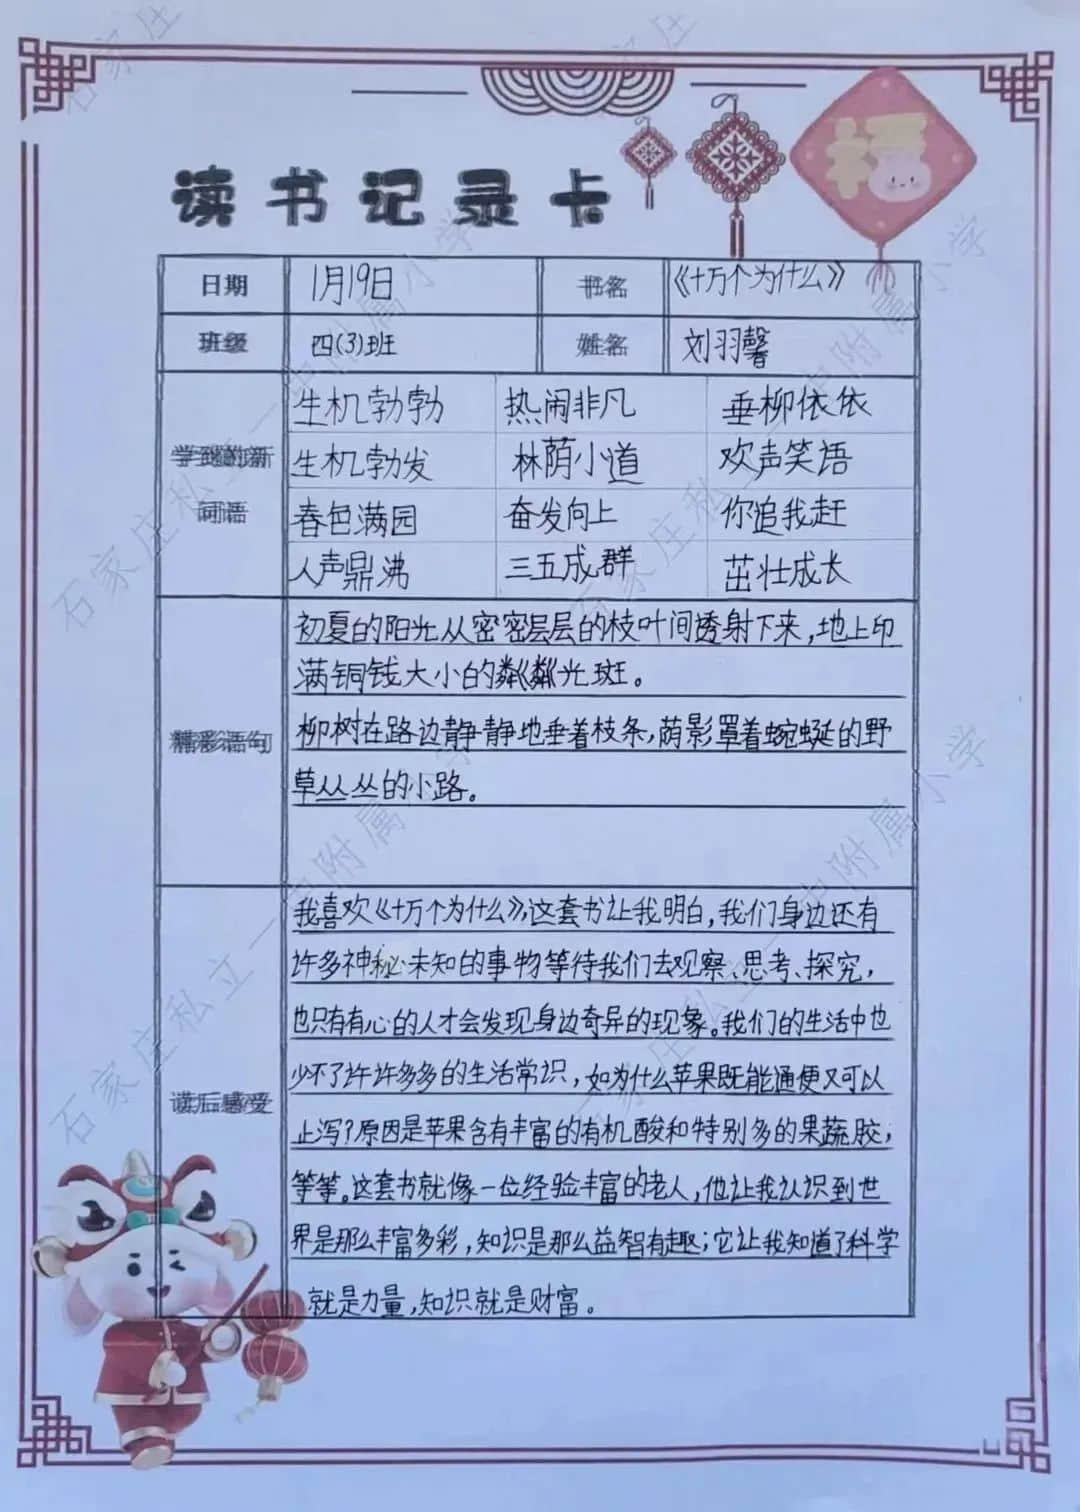 读书记录卡
日期 1月19日 书名 《十万个为什么》
班级 四(3)班 姓名 刘羽馨
学到的新词语
生机勃勃 热闹非凡 垂柳依依
生机勃发 林荫小道 欢声笑语
春色满园 奋发向上 你追我赶
人声鼎沸 三五成群 茁壮成长
精彩语句
初夏的阳光从密密层层的枝叶间透射下来,地上印
满铜钱大小的粼粼光斑。
柳树在路边静静地垂着枝条,荫影罩着蜿蜒的野
草丛丛的小路。
读后感受
我喜欢《十万个为什么》,这套书让我明白,我们身边还有
许多神秘未知的事物等待我们去观察、思考、探究,
也只有有心的人才会发现身边奇异的现象。我们的生活中也
少不了许许多多的生活常识,如为什么苹果既能通便又可以
止泻?原因是苹果含有丰富的有机酸和特别多的果蔬胶,
等等。这套书就像一位经验丰富的老人,他让我认识到世
界是那么丰富多彩,知识是那么益智有趣;它让我知道了科学
就是力量,知识就是财富。
福
石家庄私立一中附属小学
石家庄私立一中附属小学
石家庄私立一中附属小学
石家庄私立一中附属小学
石家庄
石家庄